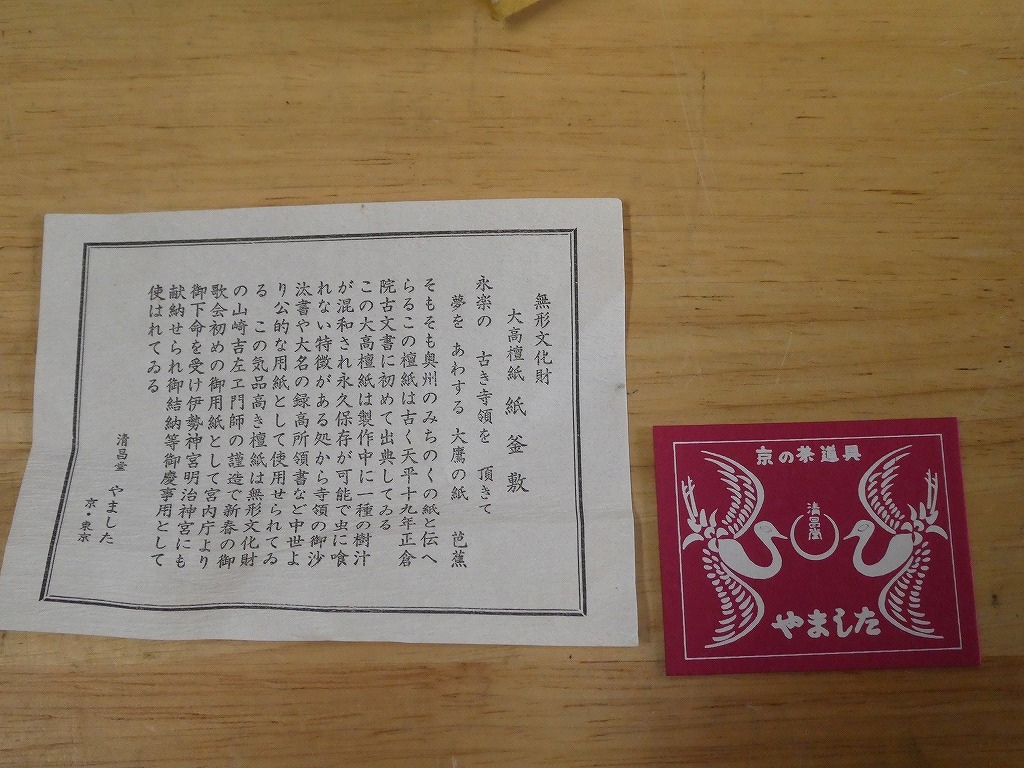 無形文化財
大高檀紙 紙釜敷
永楽の 古き寺領を 頂きて
夢を あわする 大鷹の紙 芭蕉
そもそも奥州のみちのくの紙と伝へ
らるこの檀紙は古く天平十九年正倉
院古文書に初めて出典してゐる
この大高檀紙は製作中に一種の樹汁
が混和され永久保存が可能で虫に喰
れない特徴がある処から寺領の御沙
汰書や大名の緑高所領書など中世よ
り公的な用紙として使用せられてゐ
る この気品高き檀紙は無形文化財
の山崎吉左ヱ門師の謹造で新春の御
歌会初めの御用紙として宮内庁より
御下命を受け伊勢神宮明治神宮にも
献納せられ御結納等御慶事用として
使はれてゐる
清昌堂 やました
京・東京
京の茶道具
清昌堂
やました